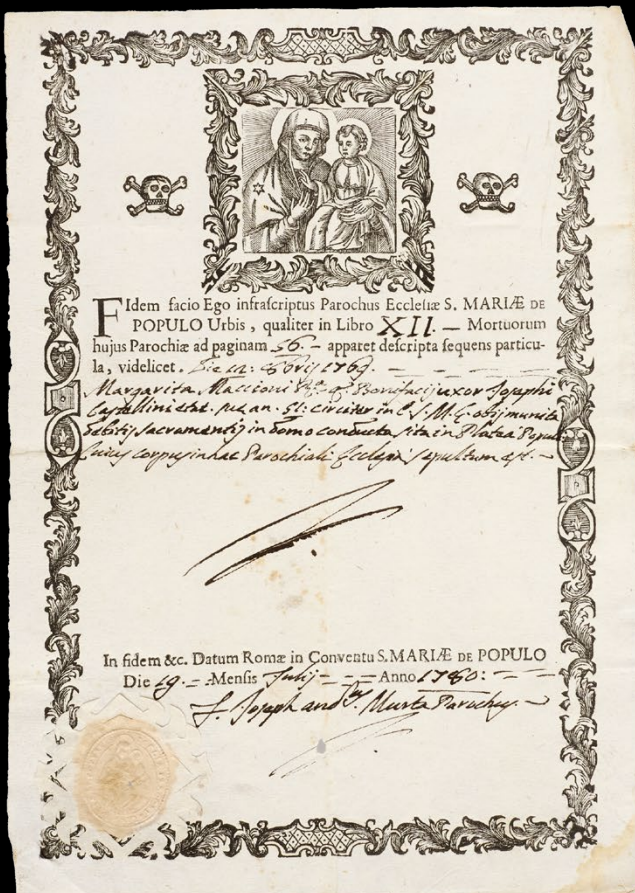 FIdem facio Ego infrascriptus Parochus Ecclesiæ S. MARIÆ DE
POPULO Urbis, qualiter in Libro XII. — Mortuorum
hujus Parochiæ ad paginam 56. — apparet descripta sequens particu-
la, videlicet. Die 12: 1769.
Margarita Maccioni Bonifacij uxor Josephi
Castellini etat. an. 51: circiter in C. S. M. E. obijt munita
debitis Sacramentis in domo conducta sita in Platea Populi
cuius corpus in hac Parochiali Ecclesia sepultum est. —
In fidem &c. Datum Romæ in Conventu S. MARIÆ DE POPULO
Die 19. — Mensis Julij — Anno 1780:
F. Joseph Murta Parochus. —